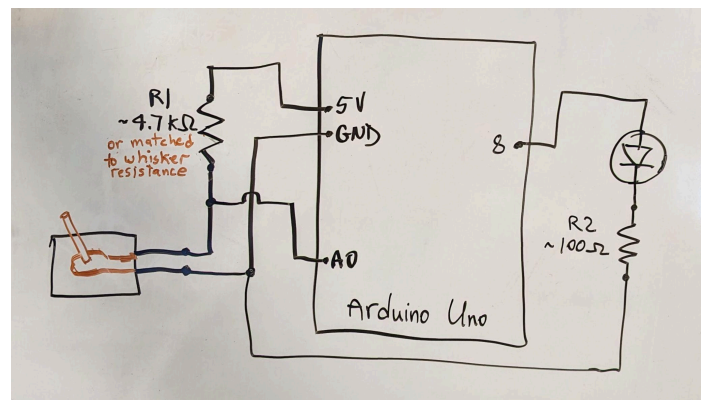 R1
~4.7kΩ
or matched
to whisker
resistance
5V
GND
A0
8
Arduino Uno
R2
~100Ω